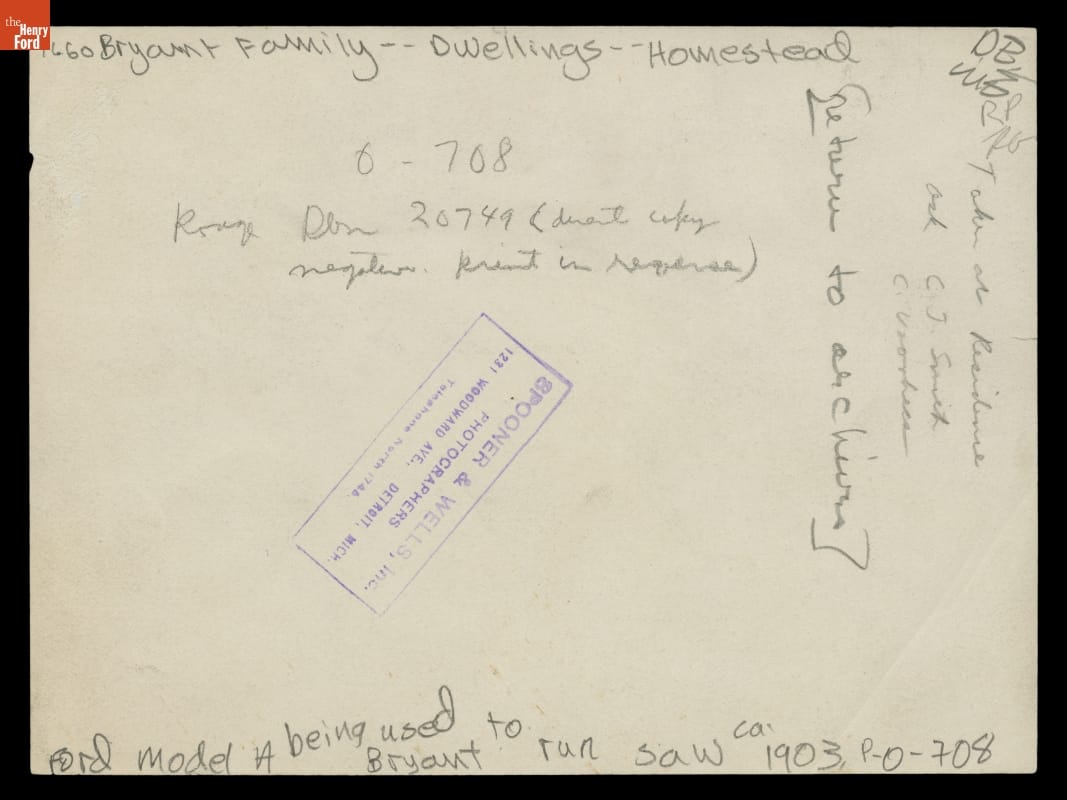 the
Henry
Ford
1660 Bryant Family -- Dwellings -- Homestead
O - 708
Rouge Dbn 20749 (direct copy
negative. Print in reverse)
[Return to archives]
Taken at Residence
ask C.J. Smith
C. Voorhess
SPOONER & WELLS, Inc.
PHOTOGRAPHERS
1231 WOODWARD AVE., DETROIT, MICH.
Telephone North 1746.
being used to ca.
Ford Model A Bryant run saw 1903, P-O-708